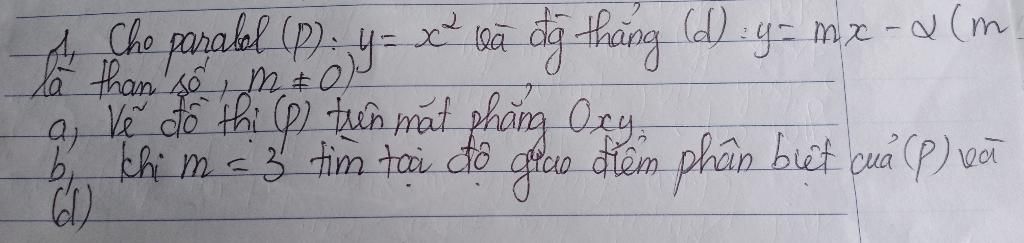 1, Cho parabol (P): y = x² và đg thẳng (d): y = mx - 2 (m
là tham số, m ≠ 0)
a, Vẽ đồ thị (P) trên mặt phẳng Oxy.
b, Khi m = 3 tìm tọa độ giao điểm phân biệt của (P) và
(d)